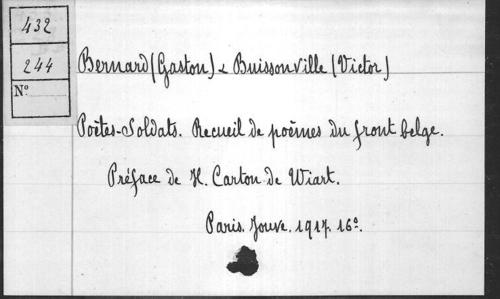 432
244
Nº
Bernard (Gaston) & Buissonville (Victor)
Poètes-Soldats. Recueil de poèmes du front belge.
Préface de H. Carton de Wiart.
Paris. Jouve. 1917. 16º.